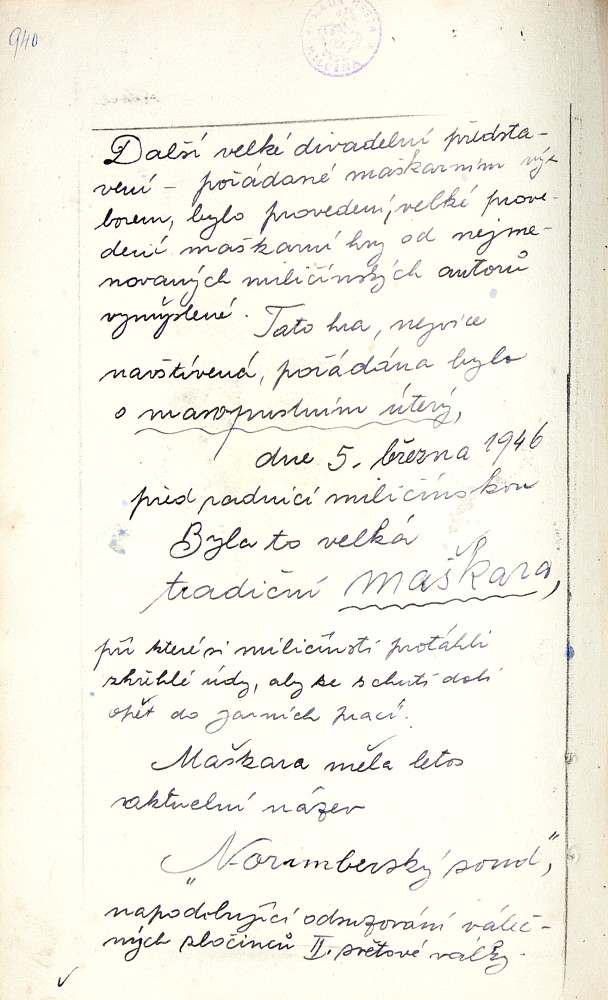 940
Další velké divadelní představ-
vení - pořádané maškarním vý-
borem, bylo provedení, velké prove-
dení maškarní hry od nejme-
novaných miličínských autorů
vymyšlené. Tato hra, nejvíce
navštívená, pořádána byla
o masopustním úterý,
dne 5. března 1946
před radnicí miličínskou
Byla to velká
tradiční maškara,
při které si miličínští protáhli
zkřehlé údy, aby se s chutí dali
opět do jarních prací".
Maškara měla letos
aktuelní název
"Norimberský soud",
napodobující odsuzování váleč-
ných zločinců II. světové války.